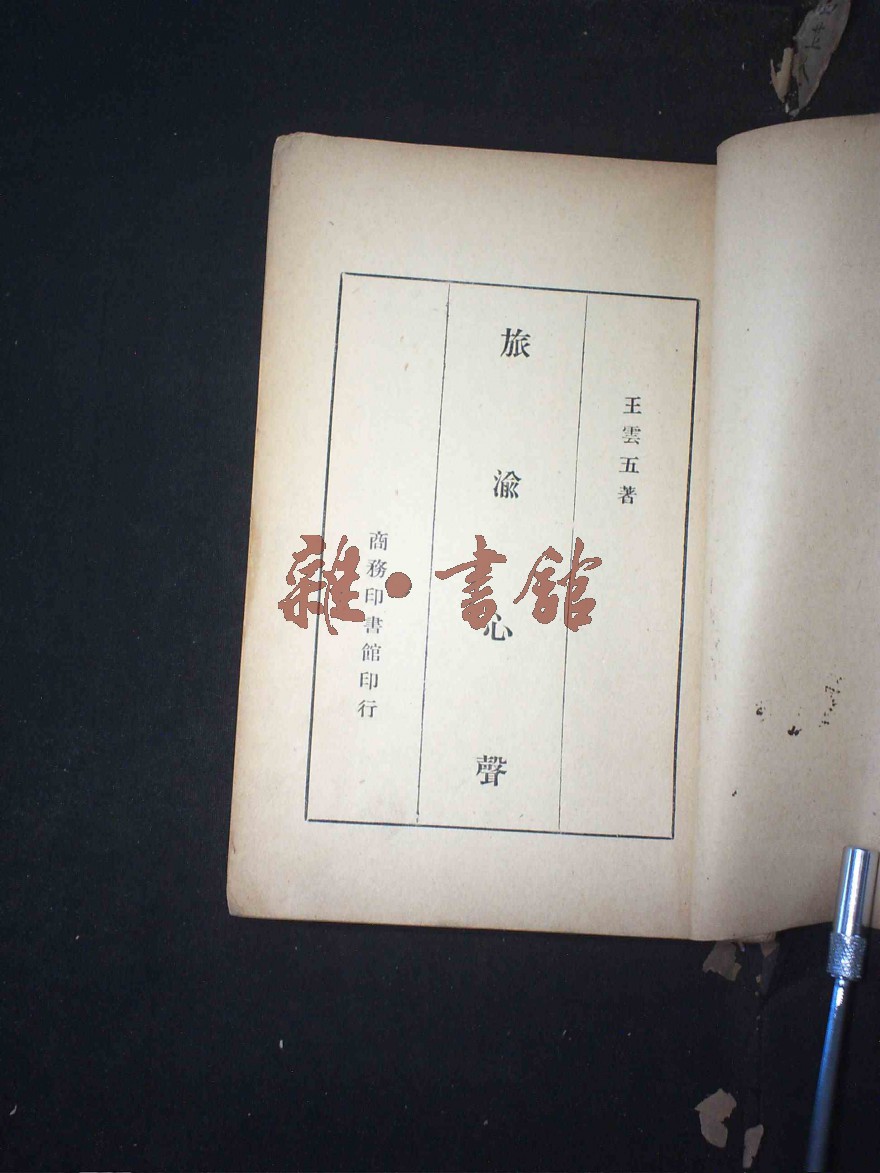 王雲五著
旅渝心聲
商務印書館印行
雜·書館